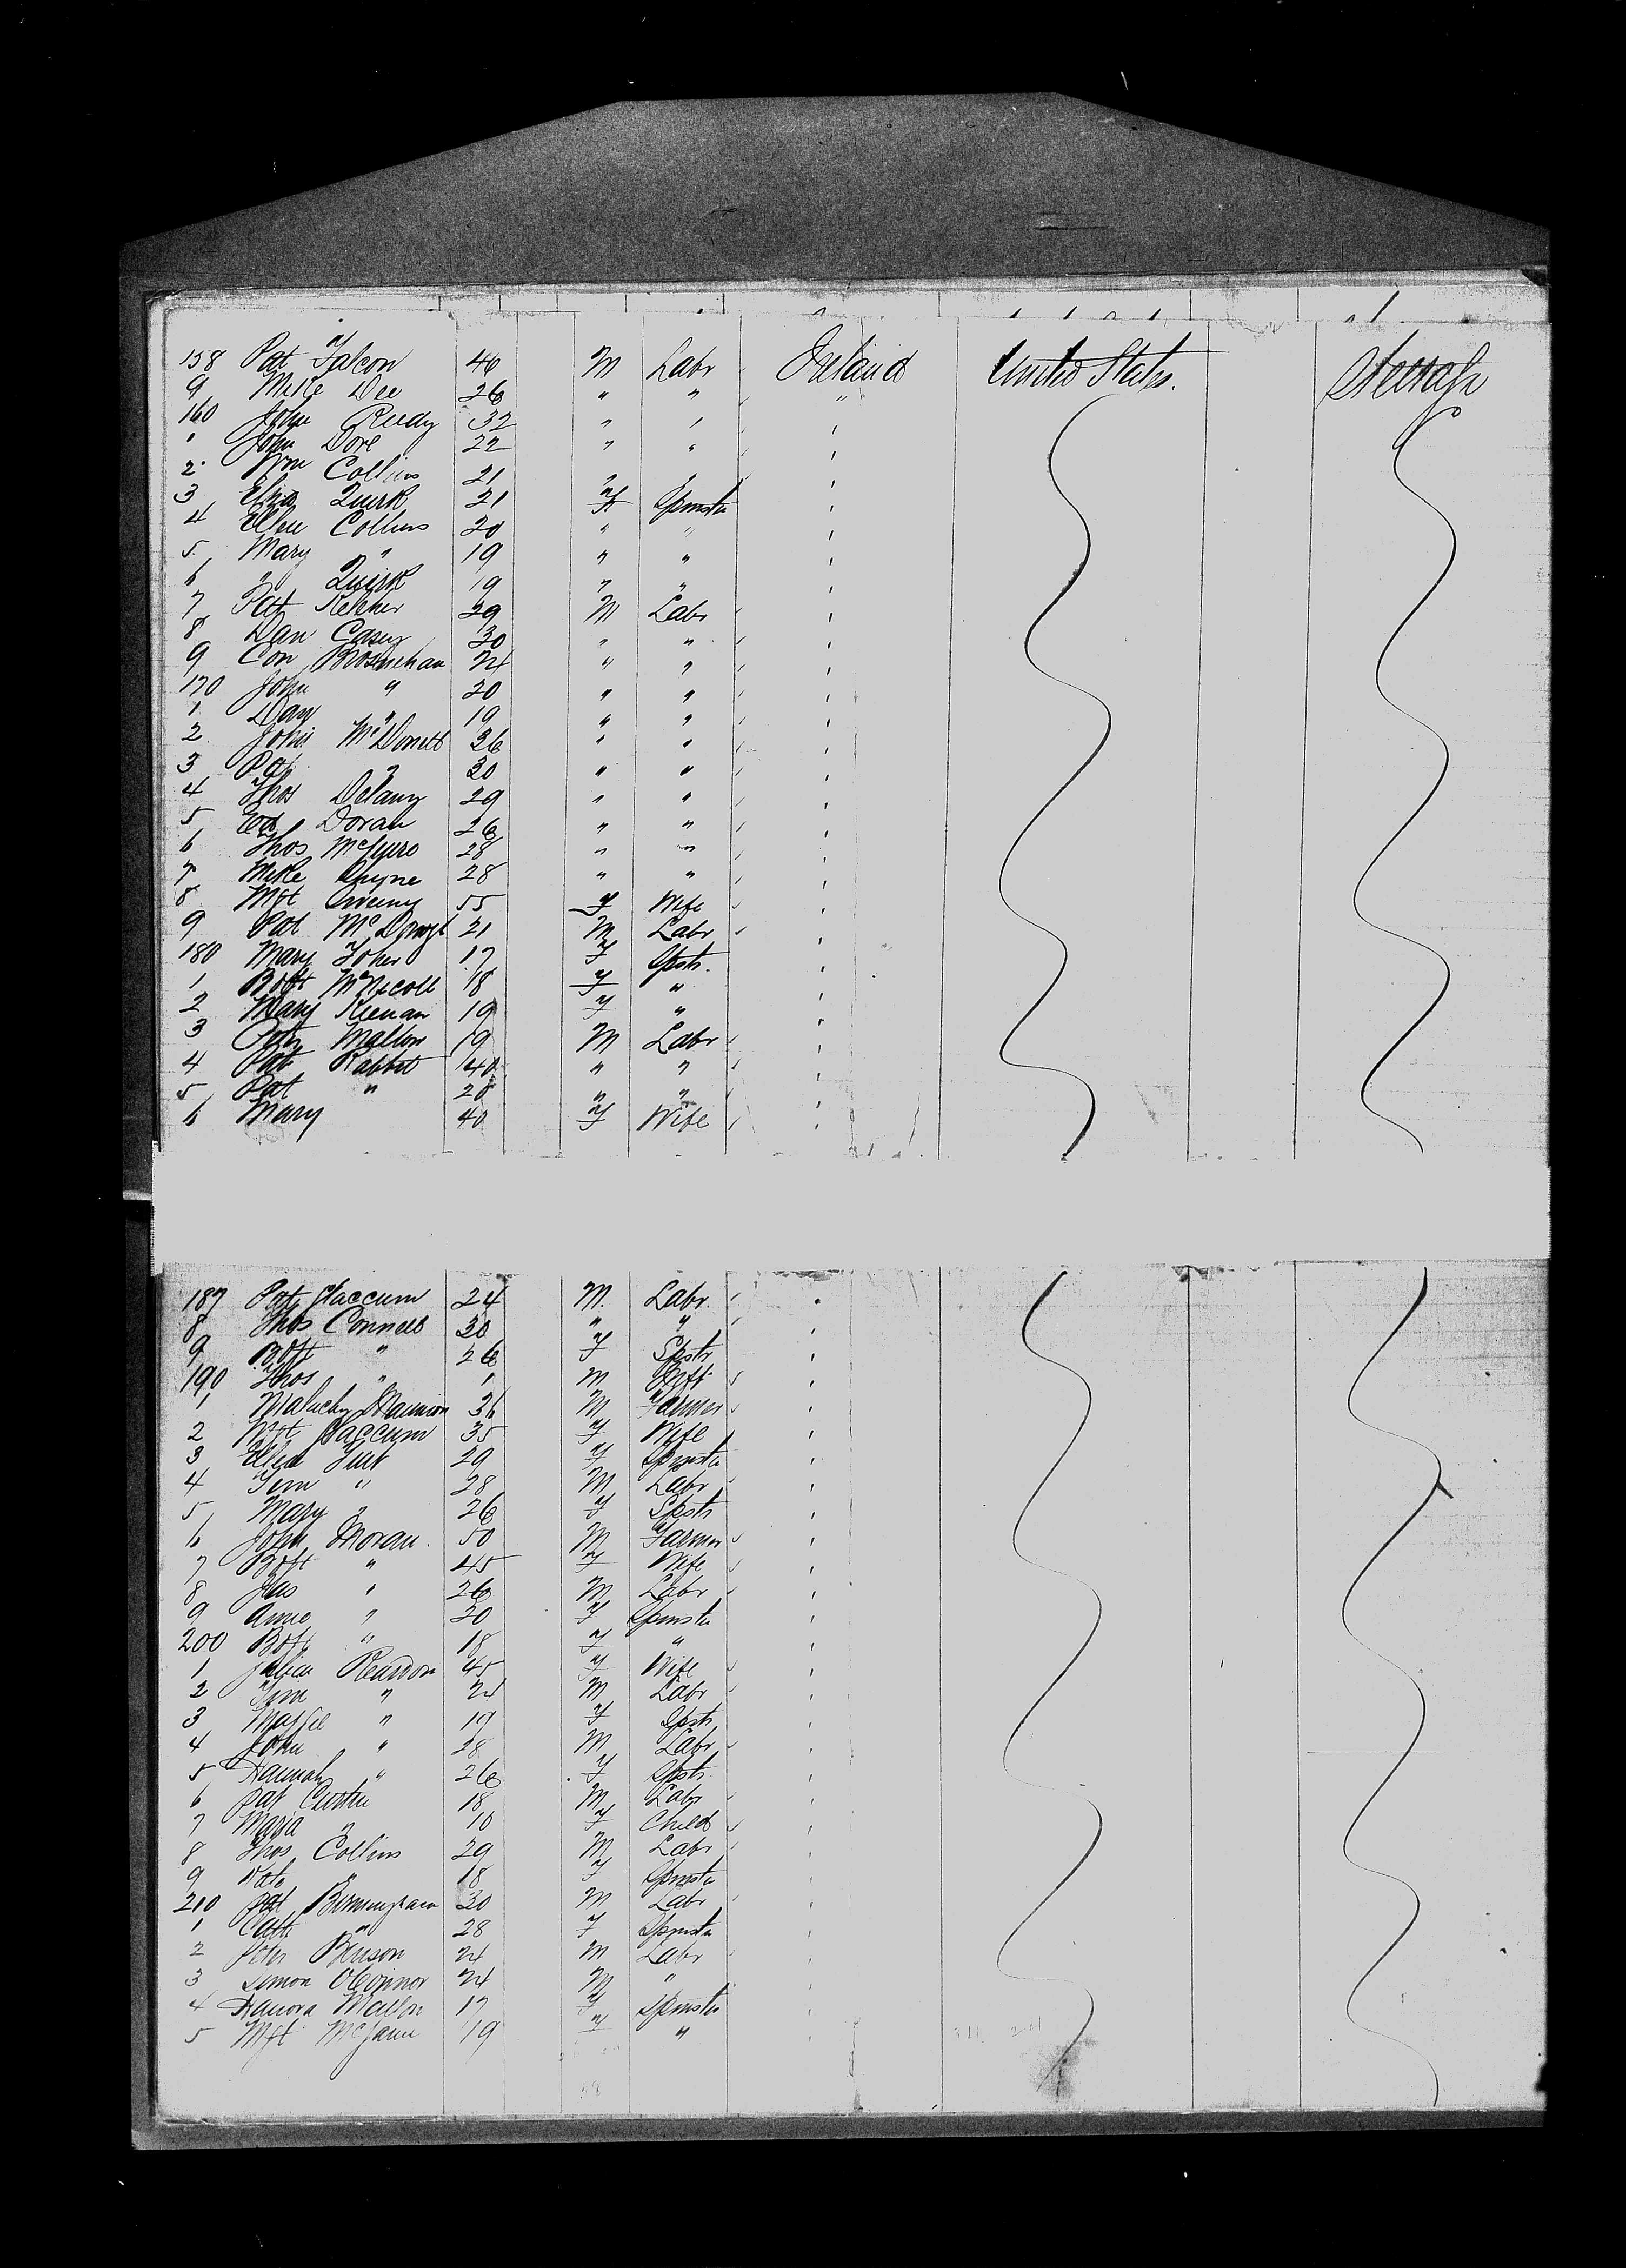 158 Pat Falcon 40 M Labr Ireland United States. Steerage
9 Mike Dee 26 " " "
160 John Reedy 32 " " "
1 John Dore 22 " " "
2 Wm Collins 21 " " "
3 Eliza Quirk 21 F Spinster "
4 Ellen Collins 20 " " "
5 Mary " 19 " " "
6 " Quirk 19 " " "
7 Patk Kelcher 29 M Labr "
8 Dan Casey 30 " " "
9 Con Brosnehan 24 " " "
170 John " 20 " " "
1 Dan " 19 " " "
2 John McDonell 36 " " "
3 Pat " 30 " " "
4 Thos Delany 29 " " "
5 Ed Doran 26 " " "
6 Thos 28 " " "
7 Mike 28 " " "
8 Mgt 55 F Wife "
9 Pat 21 M Labr "
180 Mary 17 F Spstr. "
1 McNicoll 18 F " "
2 Mary Keenan 19 F " "
3 Mallon 19 M Labr "
4 Pat Rabbit 40 " " "
5 Pat " 20 " " "
6 Mary 40 F Wife "
187 Pat 24 M. Labr. "
8 Thos Connell 30 " " "
9 " 26 F Spstr "
190 Thos " 1 M "
1 Malachy 36 M Farmer "
2 Mgt 35 F Wife "
3 Ellen 29 F Spinster "
4 Tim " 28 M Labr "
5 Mary " 26 F Spstr "
6 John Moran. 50 M Farmer "
7 " 45 F Wife "
8 Jas " 26 M Labr "
9 Annie " 20 F Spinster "
200 " 18 F " "
1 Julia Reardon 45 F Wife "
2 Tim " 24 M Labr "
3 " 19 F Spstr "
4 John " 28 M Labr "
5 Hannah " 26 F Spstr. "
6 Pat Curtin 18 M Labr "
7 Maria " 10 F Child "
8 Thos Collins 29 M Labr "
9 Kate " 18 F Spinster "
210 Pat Birmingham 30 M Labr "
1 Cath " 28 F Spinster "
2 Peter Benson 24 M Labr "
3 Simon O'Connor 24 M " "
4 Hanora Mallon 17 F Spinster "
5 Mgt 19 " " "